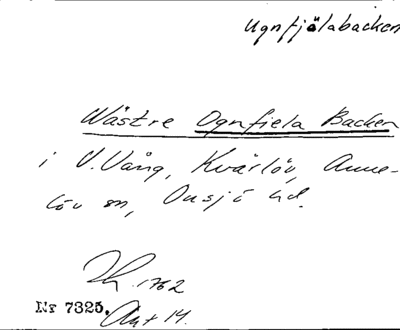 Ugnfjälabacken
Wästre Ognfiela Backen
i V. Vång, Kvärlöv, Anne-
löv sn, Onsjö hd.
1762
Nr 7325. Akt 14.